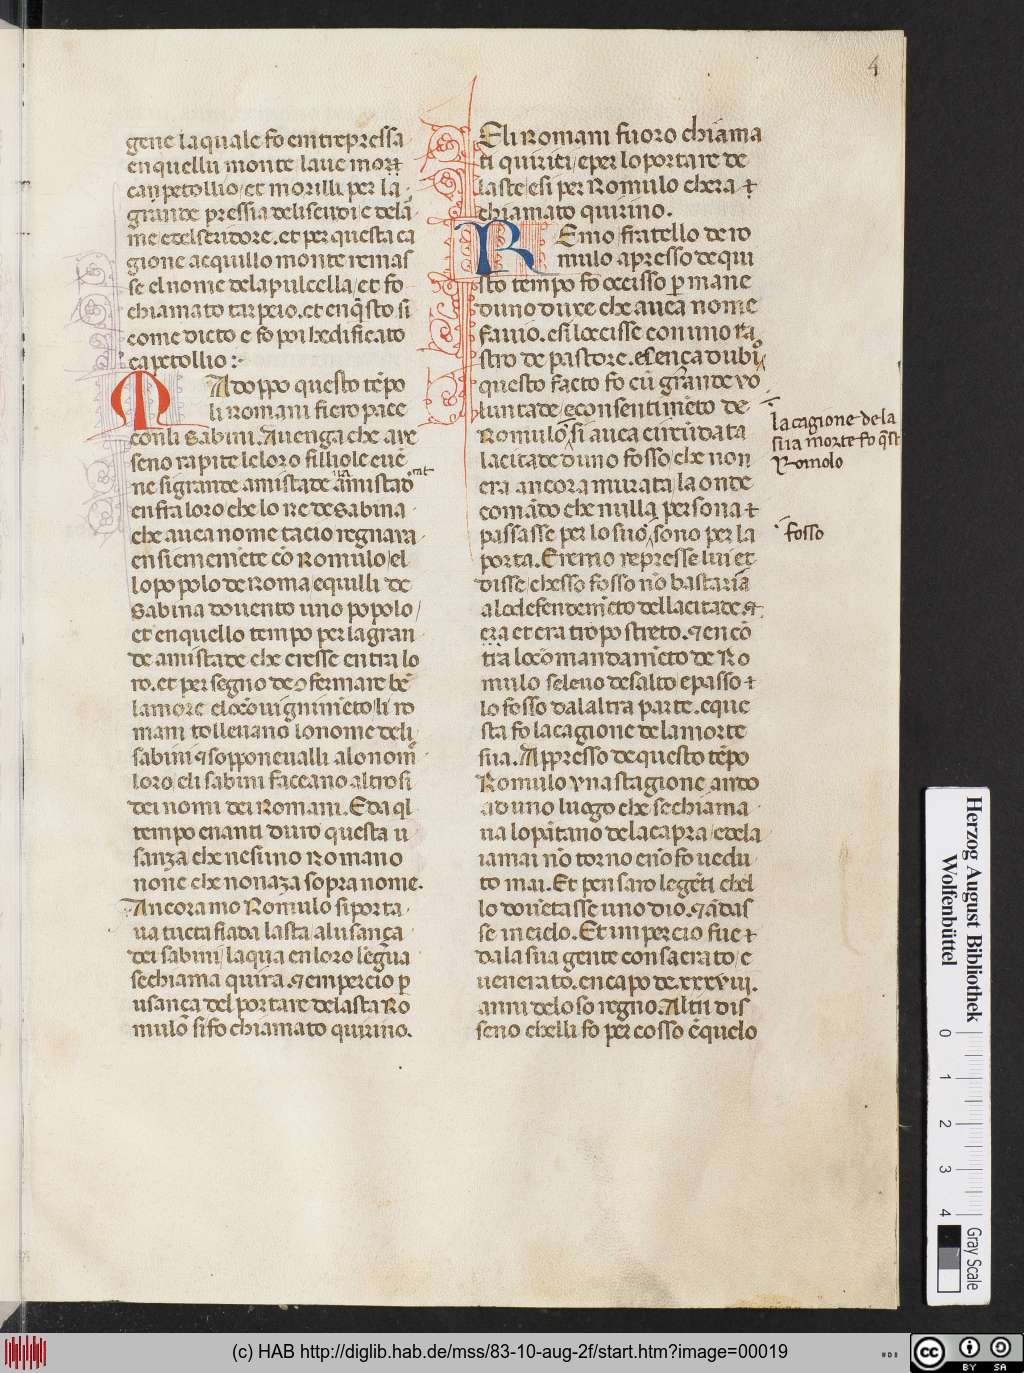 4
gene la quale fo em trepressa
en quellu monte la ue mort
canpetollio et morilli per la
grande pressia deli scudi e dela
me et del seridore. et per questa ca
gione acquillo monte remas
se el nome dela pulcella et fo
chiamato tarpeio. et en q̄sto si
come dicto e fo poi hedificato
capetollio :·
MA doppo questo tēpo
li romani fiero pace
con li Sabini. Auenga che aue
seno rapite le loro filliole euē
ne si grande amistade
en fra loro che lo re de Sabina
che auea nome tacio regnaua
ensiememēte cō Romulo el
lo popolo de Roma e quilli de
Sabina douento uno popolo
et en quello tempo per la gran
de amistade che cresse entra lo
ro. et per segno de ɔfermare bē
lamore
mani tolleuano lo nome deli
sabini
loro eli sabini faceano altrosi
dei nomi dei Romani. E da ql
tempo enanti duro questa u
sanza che nesuno Romano
none che non aza sopra nome.
Ancoramo Romulo si porta
ua tucta fiada lasta al usança
dei sabini la qua en loro lēgua
se chiama quira. et emperçio p
usança del portare de lasta Ro
mulo si fo chiamato quirino.
E li Romani fuoro chiama
ti quiriti e per lo portare de
laste esi per Romulo chera
chiamato quirino.
REmo fratello de ro
mulo apresso de qui
sto tempo fo occisso p mane
duno duxe che auea nome
Fauio. e si loccisse con uno ra
stro de pastore.
questo facto fo cū grande vo
luntade e consentimēto de
Romulo si auea circūdata
la citade duno fosso che non
era ancora murata la onde
comādo che nulla persona
passasse per lo suo sono per la
porta. E remo represse lui et
disse chesso fosso nō bastaria
alo defendemēto della citade
era et era tropo streto. et en cō
tra lo cōmandamēto de Ro
mulo se leuo de salto e passo
lo fosso dalaltra parte. e que
sta fo la cagione de la morte
sua. Appresso de questo tēpo
Romulo vna stagione ando
ad uno luogo che se chiama
ua lo pātano de la capra e dela
iamai nō torno e nō fo uedu
to mai. Et pensaro le gēti chel
lo douētasse uno dio. et ādas
se in cielo. Et imperçio fue
da la sua gente consacrato e
uenerato. en capo de xxxviii.
anni delo so regno. Altri dis
seno chelli fo percosso ē quelo
la cagione de la
sua morte fo q̄st
Romolo
fosso
Herzog August Bibliothek
Wolfenbüttel
0 1 2 3 4
Gray Scale
(c) HAB http://diglib.hab.de/mss/83-10-aug-2f/start.htm?image=00019
cc BY SA